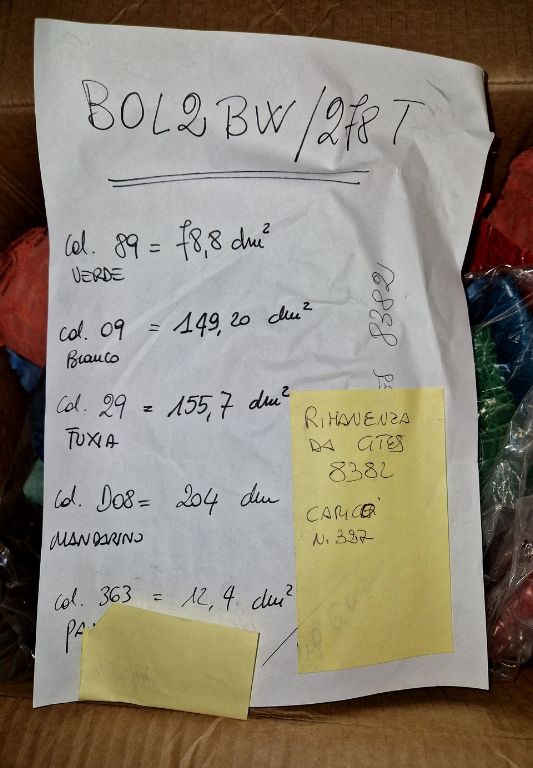 BOL2BW/278T
Col. 89 = 78,8 dm²
VERDE
Col. 09 = 149,20 dm²
Bianco
Col. 29 = 155,7 dm²
FUXIA
Col. D08 = 204 dm
MANDARINO
Col. 363 = 12,4 dm²
8382
RIMANENZA
DA CITES
8382
CARICO
N. 387